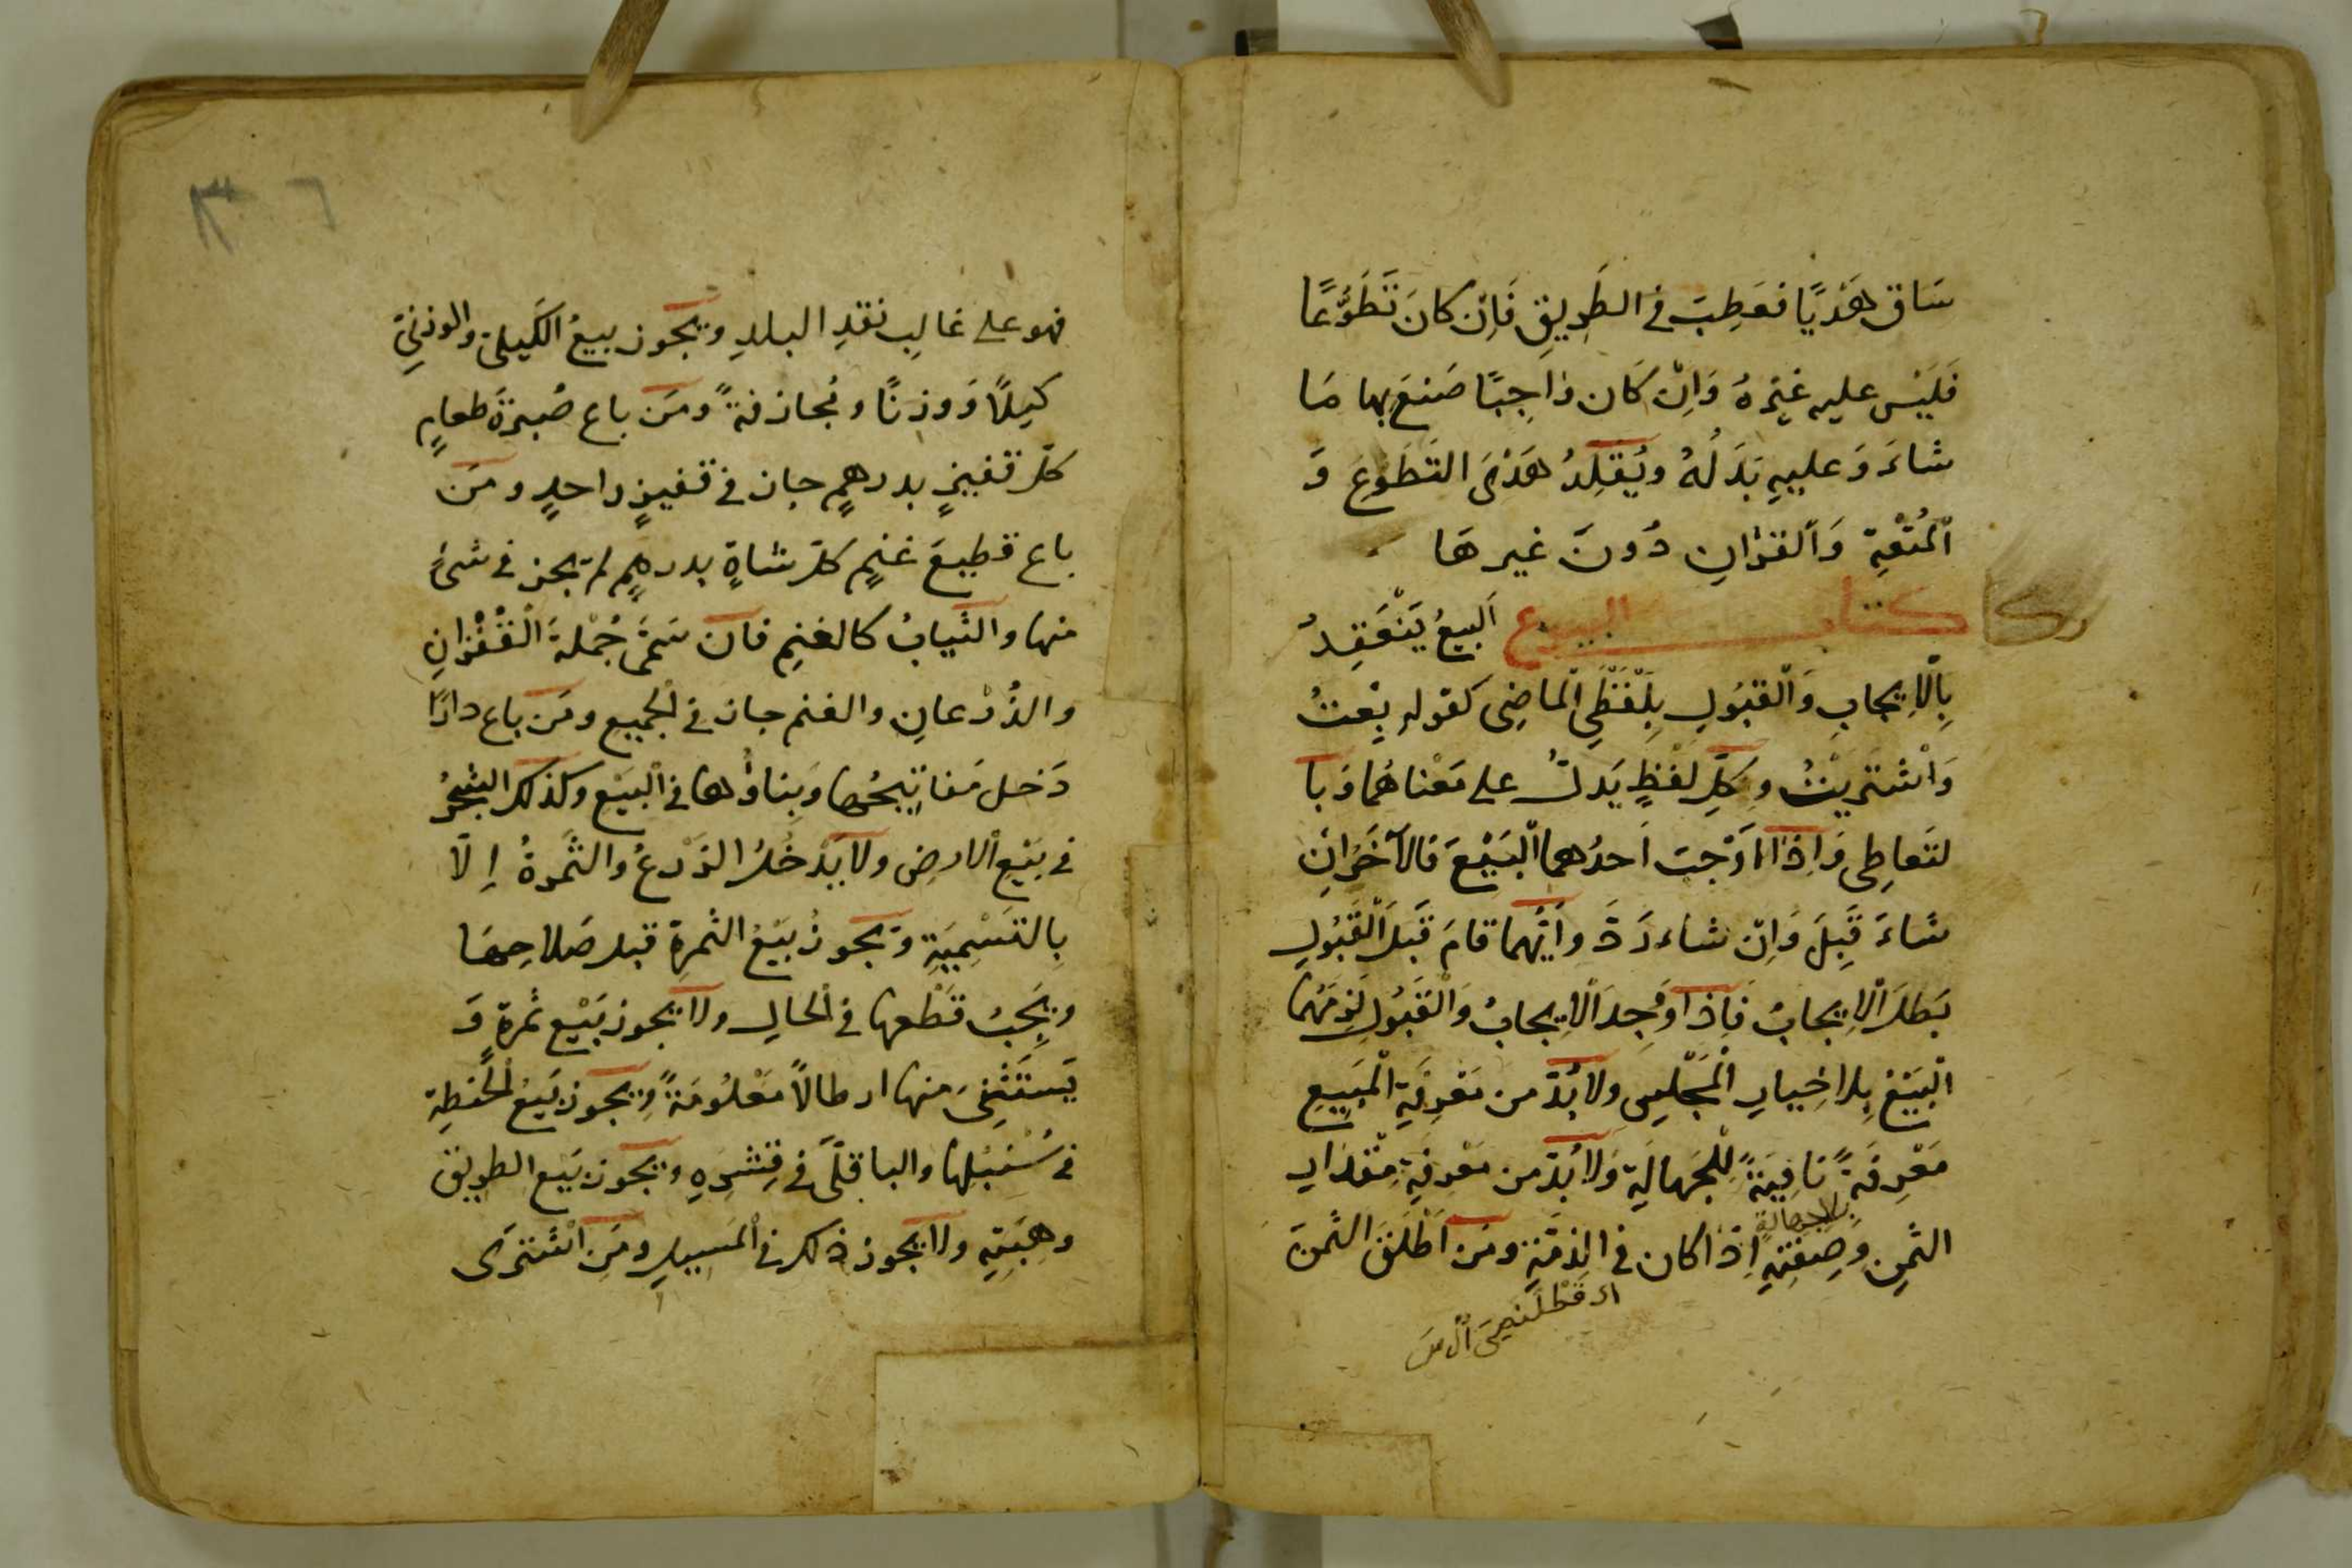 سَاق هَدْيًا فعَطِبَ فى الطَرِيقِ فَاِن كانَ تَطَوُّعًا
فَلَيْسَ عليه غيرهُ وَاِنْ كَان وَاجِبًا صَنعَ بها مَا
شاءَ وَعليهِ بَدَلُهُ ويُقلِدُ هَدْىَ التَطَوُّعِ وَ
اْلمُتْعَةِ وَالقرٰانِ دُونَ غيرهَا
كتاب البيوع اَلبيعُ يَنْعَقِدُ
بِاْلاِيجابِ وَاْلقبُولِ بِلَفْظَىِ اْلماضِى كقولهِ بِعتُ
وَاْشتريْتُ وكلِّ لفظٍ يَدلُّ على مَعْناهُما وَبا
لتعاطِى وَاِذَا اَوْجبَ اَحدُهما اْلبَيْعَ فالآخَرُ اِنْ
شاءَ قَبِلَ وَاِنْ شاء رَدَّ وأَيُّهما قامَ قَبلَ اْلقَبُولِ
بَطلَ اْلاِيجابُ فَاِذا وُجِدَ اْلاِيجابُ وَاْلقَبُولِ لَزِمَهُما
اْلبَيْعُ بِلا خِيارِ اْلمَجْلِسِ ولا بُدَّ من مَعْرِفَةِ اْلمَبِيعِ
مَعْرِفَةً نَافِيَةً لِلْجَهالَةِ وَلا بُدَّ من مَعْرِفَةِ مِقْدَارِ
بلا جهالةٍ
الثمنِ وصِفتِهِ اِذَا كان فى الذِمَّةِ ومَن اَطْلَقَ الثمنَ
٣٦
فهو على غالِبِ نقدِ البلدِ ويَجُوز بيعُ الكَيلىِّ والوزنىِّ
كيلًا وَوزنًا ومُجازفةً ومَن باع صُبرَةَ طعامٍ
كلّ قفيزٍ بدرهمٍ جاز فى قفيزٍ واحدٍ ومَن
باع قطيعَ غنمٍ كلّ شاةٍ بدرهمٍ لم يجز فى شىءٍ
منها والثيابُ كالغنمِ فان سَمَّى جُمْلةَ اْلقُفْزانِ
والذُرْعانِ والغنم جاز فى الجميع ومَن باع دارًا
دَخل مَفاتيحُها وَبناؤُها فى اْلبَيْع وكذلك الشجرُ
فى بَيْع اْلارضِ ولا يَدْخُلُ الزَرْعُ والثَمرةُ اِلَّا
بِالتسْمِيَةِ وَيَجُوزُ بَيْعُ الثمرةِ قبل صَلاحِها
ويَجِبُ قَطْعها فى الحالِ ولا يجوز بَيْع ثمرةٍ وَ
يَستَثْنىَ منها ارطالًا مَعْلُومَةً ويجوز بَيعُ الحُنطِةِ
فى سُنْبُلِها والباقلّى فى قِشْرِهِ ويجوز بَيع الطريق
وهِبَتِهِ ولا يجوز ذلك فى المَسِيلِ ومَن اشْتَرى